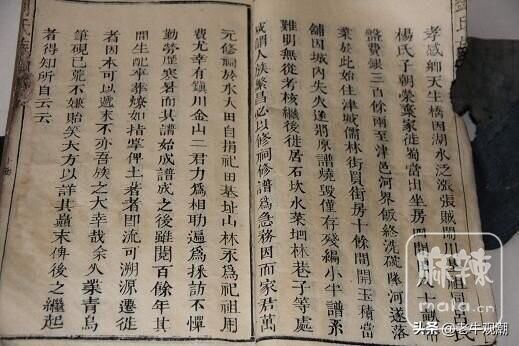 孝感卿天生橋因湖水泛漲賊
楊氏子朝榮棄家徙蜀當出坐房
盤費銀三百餘兩至津邑河界飯終洗碗墜河遂落
業於此始住津城儒林街買街房十餘間開玉積當
舖因城內失火遂將原譜燒毀僅存殘編小半譜系
難明無從考核繼後徙居石坎水菜埡林巷子等處
咸謂人族繁昌必以修祠修譜為急務因而家君萬
元修祠於水大田自捐祀田基址山林永為祀祖用
費尤幸有鎮川金山二君力為相助遍為採訪不憚
勤勞歷寒暑而其譜始成譜成之後雖閱百餘年其
間生配卒葬燎如指掌俾士著者即流可溯源遷徙
者因本可以遞末不亦吾族之大幸哉余久業青烏
筆硯已荒不嫌貽笑大方以詳其蕞末俾後之繼起
者得知所自云云
麻辣
mala.cn
头条 @老牛观潮